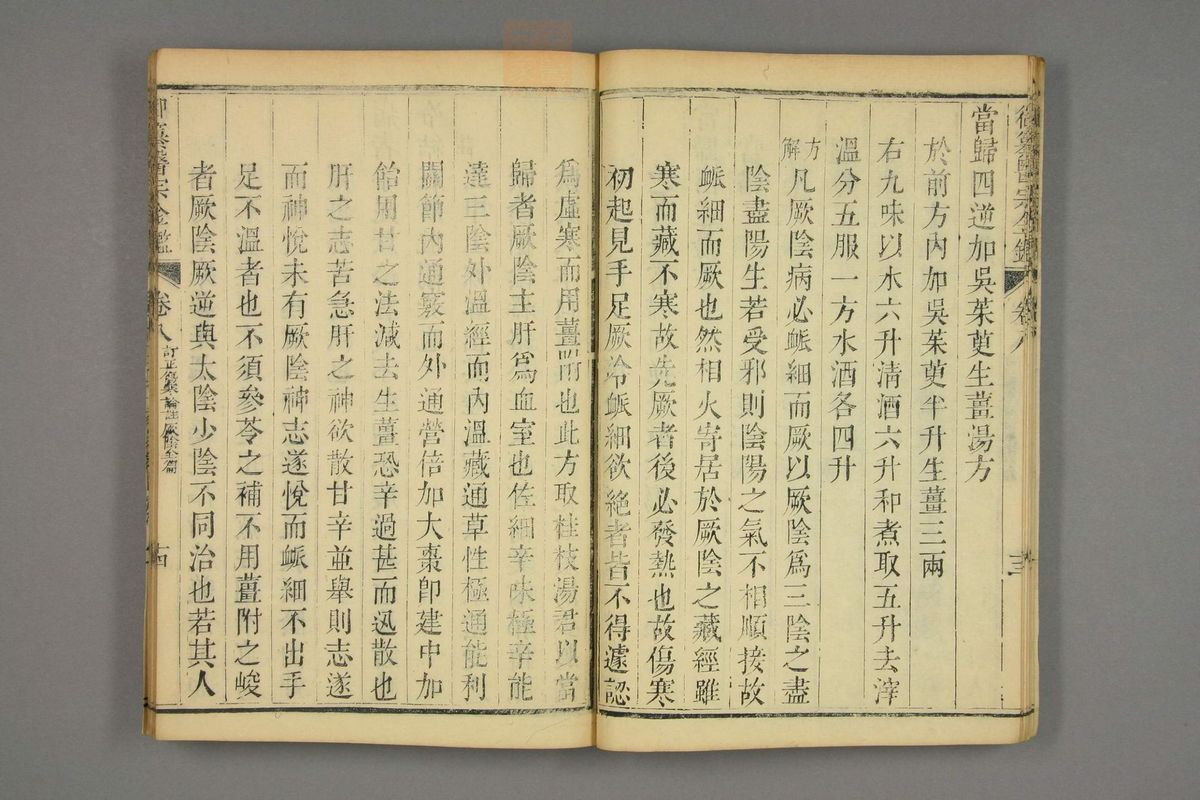 當歸四逆加吳茱萸生薑湯方
於前方內加吳茱萸半升生薑三兩
右九味以水六升清酒六升和煮取五升去滓
溫分五服一方水酒各四升
方解
凡厥陰病必脈細而厥以厥陰爲三陰之盡
陰盡陽生若受邪則陰陽之氣不相順接故
脈細而厥也然相火寄居於厥陰之藏經雖
寒而藏不寒故先厥者後必發熱也故傷寒
初起見手足厥冷脈細欲絕者皆不得遽認
爲虛寒而用薑附也此方取桂枝湯君以當
歸者厥陰主肝爲血室也佐細辛味極辛能
達三陰外溫經而內溫藏通草性極通能利
關節內通竅而外通營倍加大棗即建中加
飴用甘之法減去生薑恐辛過甚而迅散也
肝之志苦急肝之神欲散甘辛並舉則志遂
而神悅未有厥陰神志遂悅而脈細不出手
足不溫者也不須參苓之補不用薑附之峻
者厥陰厥逆與太陰少陰不同治也若其人
御纂醫宗金鑑
卷八
十四